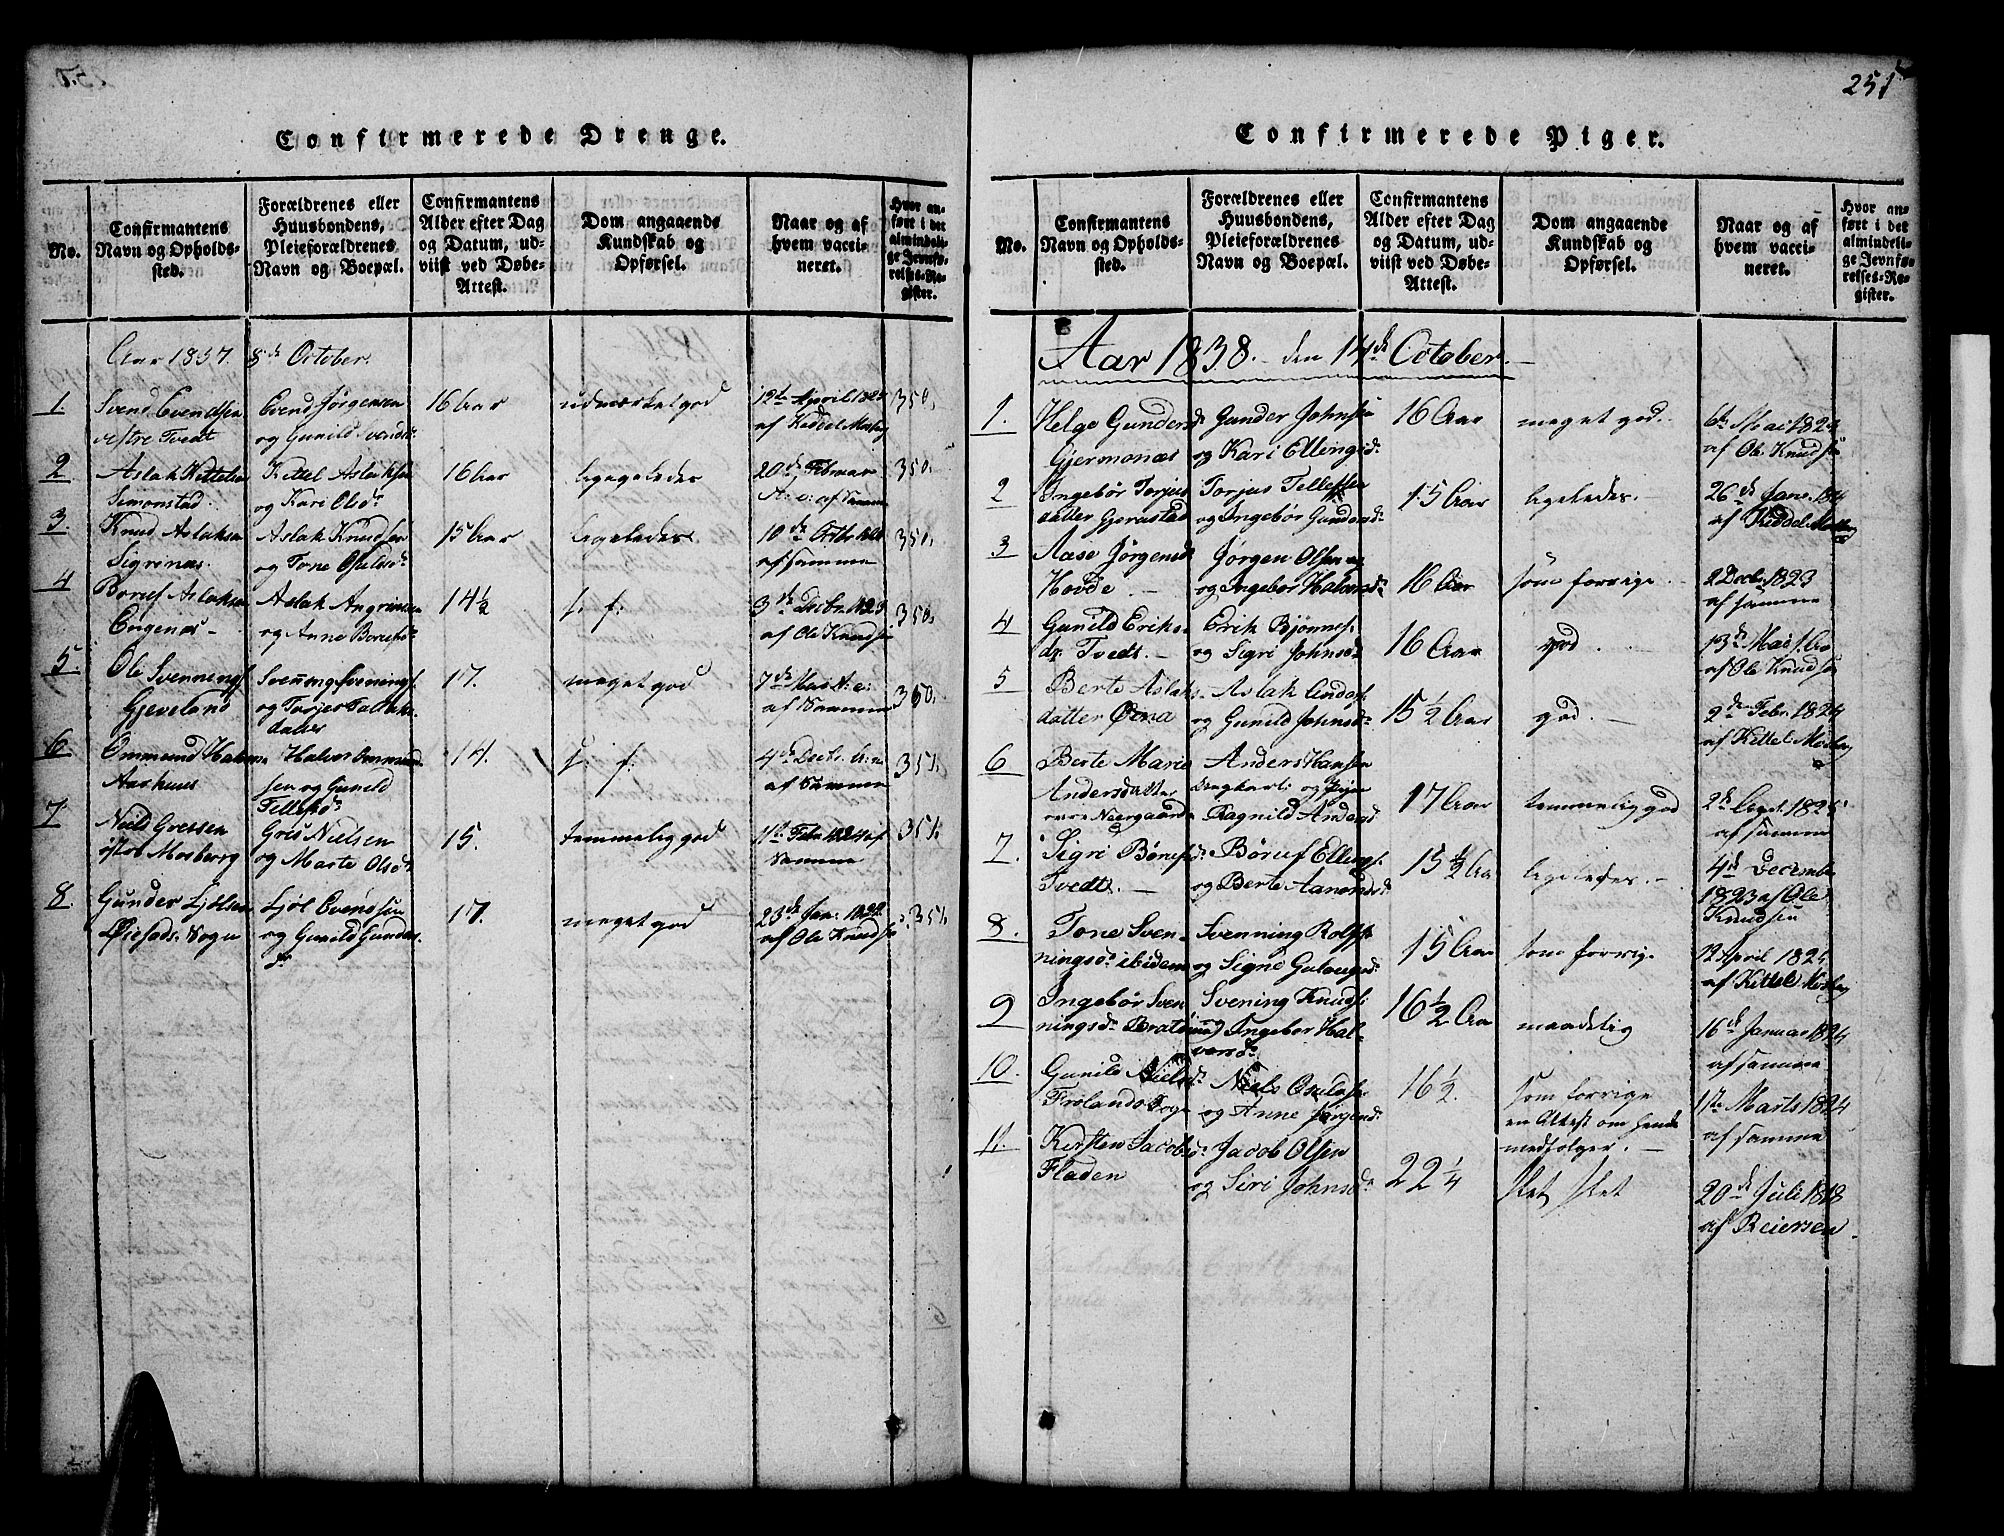 251
Confirmerede Drenge.
No.
Confirmantens
Navn og Opholds-
sted.
Forældrenes eller
Huusbondens,
Pleieforældrenes
Navn og Boepæl.
Confirmantens
Alder efter Dag
og Datum, ud-
viist ved Døbe-
Attest.
Dom angaaende
Kundskab og
Opførsel.
Naar og af
hvem vacci-
neret.
Hvor an-
ført i det
almindeli-
ge Jevnfø-
relses-Re-
gister.
Aar 1837. 8de October.
1
Svend Evendsen
vestre Tvedt
Evend Jørgensen
og Gunild Svends
16 Aar
udmærket god
12te April 1824
af Keddel Mosbg
350.
2
Aslak Kittelsen
Simonstad.
Kittel Aslaksen
og Kari Olsd.
16 Aar
ligeledes
20de Februar
af Samme
350.
3.
Knud Aslaksen
Sigrinæs.
Aslak Knudsen
og Tone
15 Aar
ligeledes.
10de Octbr
af Samme
350.
4
Aslaksen
Engenæs
Aslak
og Anne
14½
l. f:
3de Decbr. 1823
af Ole Knudsen
350.
5.
Ole Svennings
Gjeveland
Svening Svenings.
og Torjer
datter
17.
meget god
7de
af Samme
350.
6
Ommund Halvors
Aashuus
Halvor Ommund
sen og Gunild
Tellefsd.
14.
l. f:
4de Decbr.
af Samme
351.
7
Niels Grossen
østre Mosberg
Nielsen
og Marte Olsd.
15.
temmelig god
11te Febr. 1824 af
Samme
351.
8.
Gunder Ljølsen
Øiestads Sogn
Ljøl Evensen
og Gunild Gunders
dr
17.
meget god
23de Jan: 1822
af Ole Knudsen
351.
Confirmerede Piger.
No.
Confirmantens
Navn og Opholds-
sted.
Forældrenes eller
Huusbondens,
Pleieforældrenes
Navn og Boepæl.
Confirmantens
Alder efter Dag
og Datum, ud-
viist ved Døbe-
Attest.
Dom angaaende
Kundskab og
Opførsel.
Naar og af
hvem vacci-
neret.
Hvor an-
ført i det
almindeli-
ge Jevnfø-
relses-Re-
gister.
Aar 1838. den 14de October.
1.
Helge Gundersd
Gjermonæs
Gunder Johnsen
og Kari Ellingsd.
16 Aar
meget god.
6te Mai 1823
af Ole Knudsen
2
Ingebør Torjus
datter Gjerustad
Torjus Tellefsen
og Ingebør Gundersd.
15 Aar
ligeledes.
26de Jan. 1824
af Keddel
3
Aase Jørgensd
Hovde
Jørgen Olsen
og Ingebor Halvorsd.
16 Aar
som forrige
2 Decbr. 1823
af samme
4
Gunild Eriks
dr. Tvedt.
Erik Bjønnes.
og Sigri Johnsd
16 Aar
god
13de Mai
af Ole Knudsen
5
Berte Aslaks
datter Øvna
Aslak Anders.
og Gunild Johnsd.
15½ Aar
god.
2de Febr. 1824
af Kittel Mosbg
6
Berte Marie
Andersdatter
Neergaard
Anders Hansen
og Pige
Ragnild Andersd
17 Aar
temmelig god
2de Sept. 1825
af samme
7.
Sigri Børufsd.
Tvedt.
Børuf Ellings.
og Berte Aamondsd.
15½ Aar
ligeledes.
4de December
1823 af Ole
Knudsen
8.
Tone Sven-
ningsd. ibidem
Svenning Rolfs
og Signe
15 Aar
som forrige
12 April 1825
af Kittel Mosbg
9
Ingebør Sven
ningsd.
Svening Knuds.
Ingebor Hal-
vorsd.
16½ Aar
maadelig
16de Januar 1824
af samme
10.
Gunild Nielsd.
Frolands Sogn
Niels Oselsen
og Anne Jørgensd.
16½.
som forrige
en Attest om hende
medfølger.
1ste Marts 1824
af samme
11.
Kirsten Jacobsd.
Fladen
Jacob Olsen
og Siri Johnsd.
22¼
slet slet
20de Juli 1818
af Reiersen.